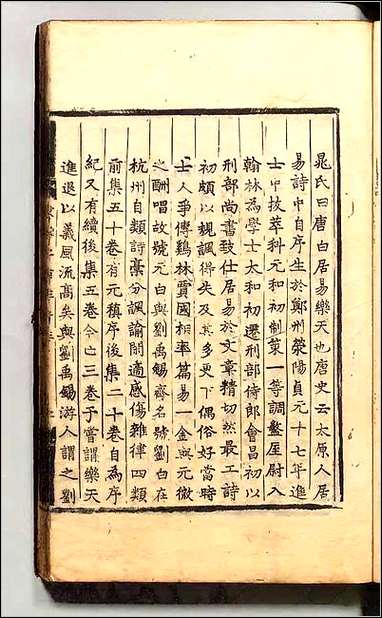 晁氏曰唐白居易樂天也唐史云太原人居
易詩中自序生於鄭州滎陽貞元十七年進
士中拔萃科元和初制策一等調盩厔尉入
翰林為學士太和初遷刑部侍郎會昌初以
刑部尚書致仕居易於文章精切然最工詩
初頗以規諷得失及其多更下偶俗好當時
士人爭傳鷄林賈國相率篇易一金與元微
之酬唱故號元白與劉禹錫齊名號劉白在
杭州自類詩藁分諷諭閒適感傷雜律四類
前集五十卷有元稹序後集二十卷自為序
紀又有續後集五卷今亡三卷予嘗謂樂天
進退以義風流高矣與劉禹錫游人謂之劉